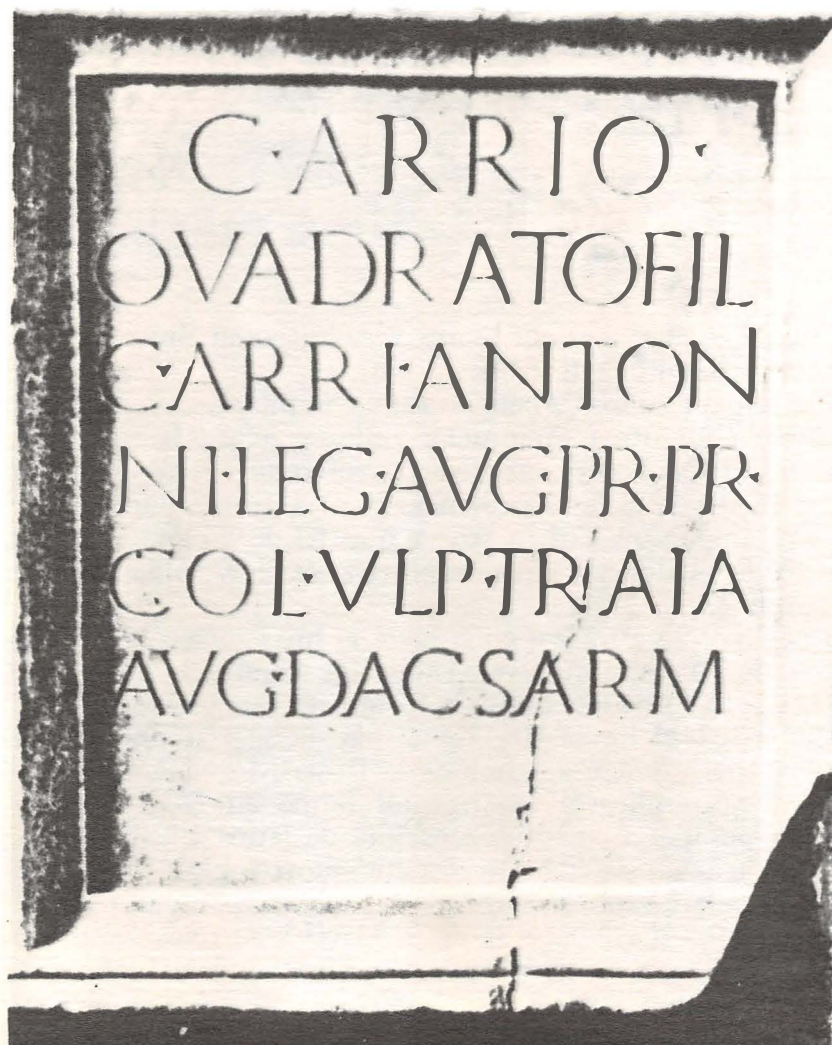 C·ARRIO·
QVADRATOFIL
C·ARRI·ANTON
NI·LEG·AVG·PR·PR·
COL·VLP·TRAIA
AVG·DACSARM